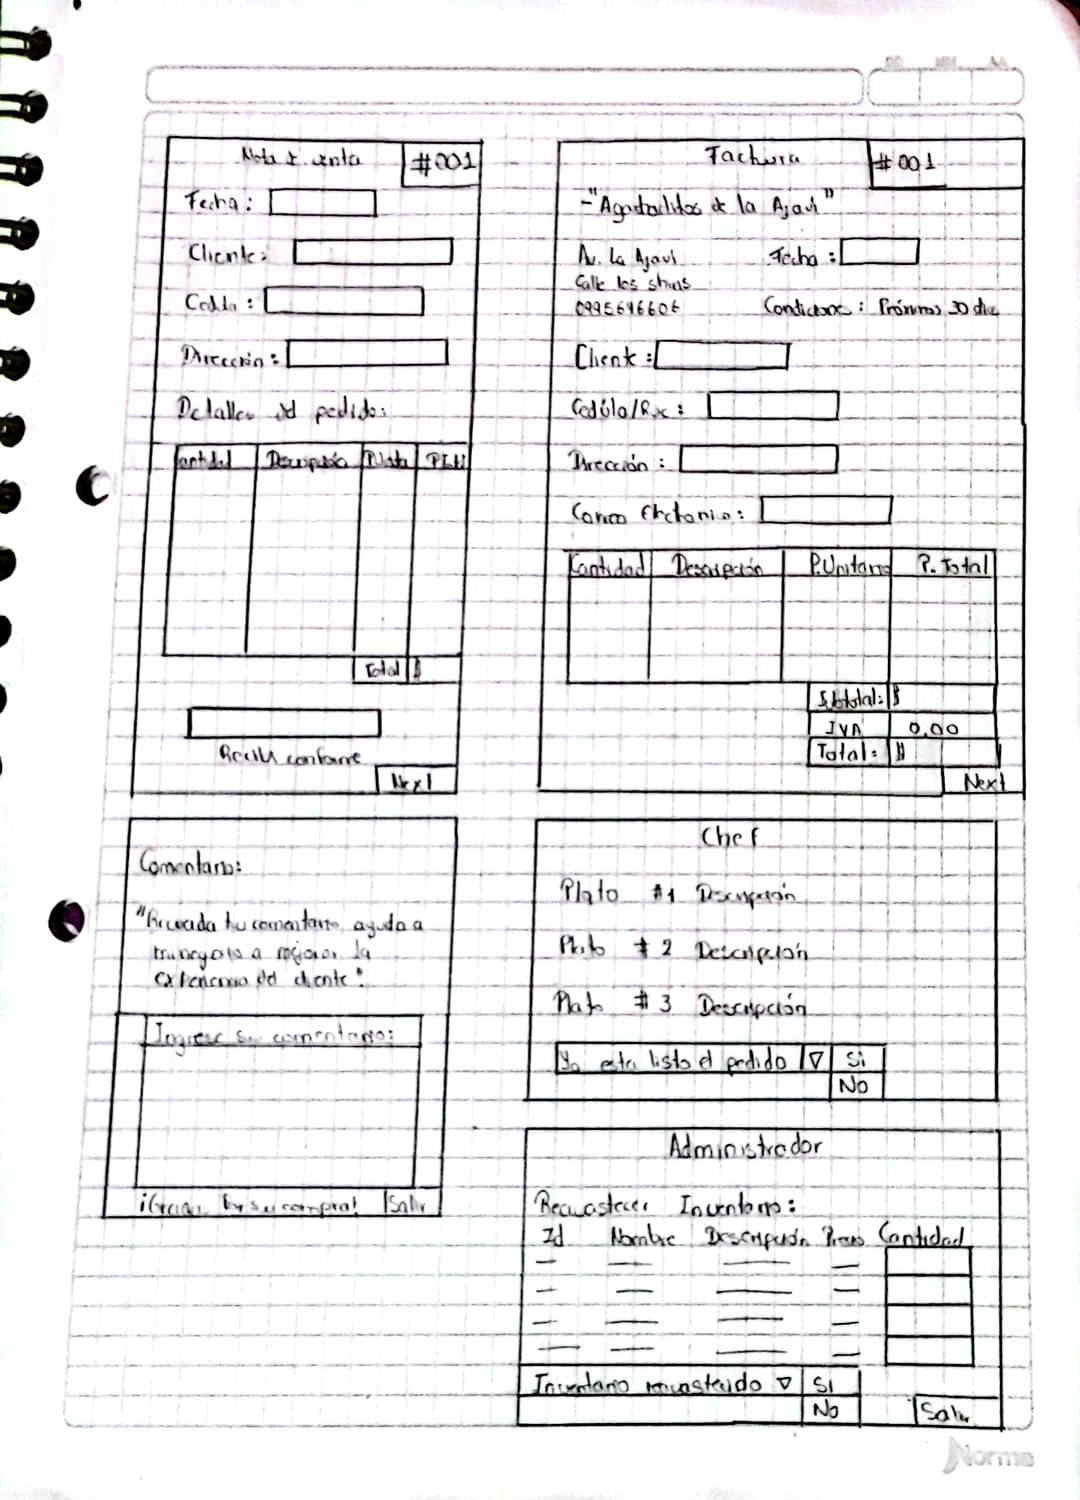 DD MM AA
Nota d venta #001
Fecha:
Cliente:
Cedula:
Dirección:
Detalles del pedido:
Cantidad Descripción
Total $
Recibi conforme
Next
Fachura #001
de la Ajavi"
Av. La Ajavi Fecha:
Calle los
Condiciones: Próximos 30 dias
Cliente:
Cedúla/Ruc:
Dirección:
Correo Electronico:
Cantidad Descripción P.Unitario P. Total
Subtotal: $
IVA 0.00
Total: $
Next
Comentario:
"Recuerda tu comentario ayuda a
a mejorar la
experiencia del cliente"
Ingrese su comentario:
¡Gracias por su compra! Salir
Chef
Plato #1 Descripción
Plato #2 Descripción
Plato #3 Descripción
Ya esta listo el pedido Si
No
Administrador
Inventario:
Id Nombre Descripción Precio Cantidad
Inventario SI
No
Salir
Norma